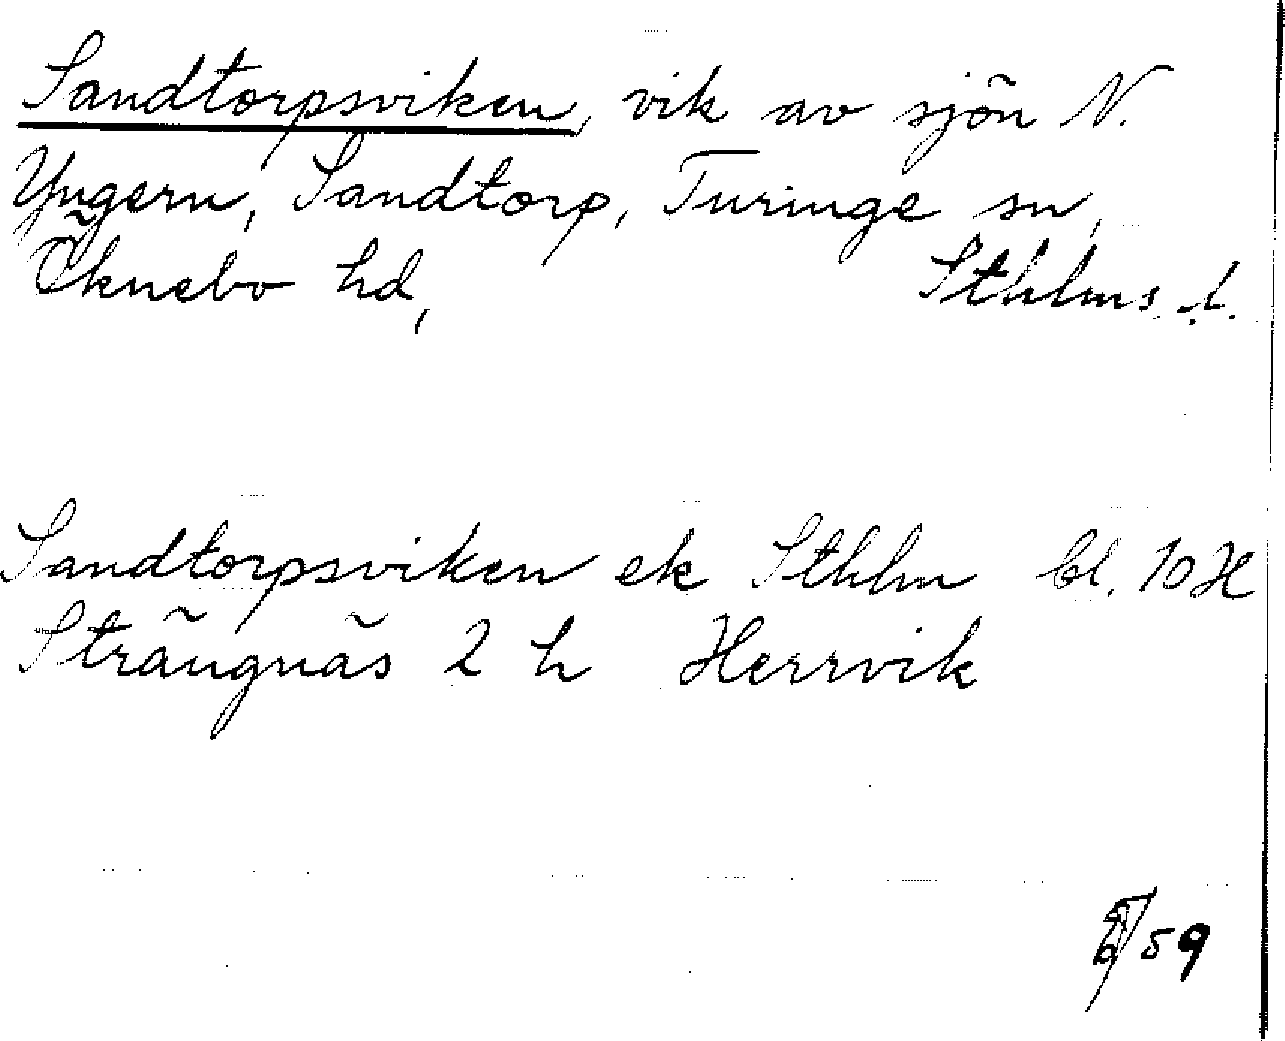 Sandtorpsviken, vik av sjön N.
Yngern, Sandtorp, Turinge sn,
Öknebo hd, Sthlms l.
Sandtorpsviken ek Sthlm bl. 10 H
Strängnäs 2 h Herrvik
59